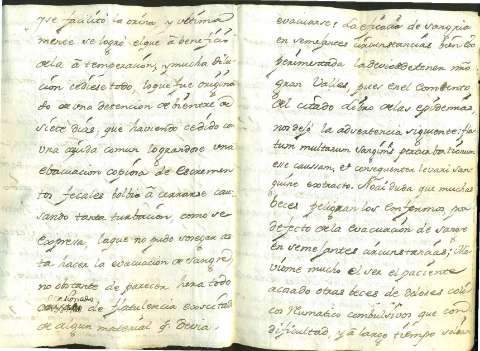 y se facilitó la orina y ultima
mente se logró el que a beneficio
de la atemperación, y mucha dilu
ción cediese todo, lo que fue origina
do de una detencion de vientre de
siete dias, que haviendo cedido co
una aiuda comun lograndose una
evacuacion copiosa de Excremen
tos fecales bolbió a cerrarse cau
sando tanta turbacion, como se
expresa, la que no pudo sosegar as
ta hacer la evacuacion de sangre
no obstante de parecer hera todo
de flatulencia excecitada
de algun material q.
evacuarse: La eficacia de sangria
en semejantes circunstancias bien ex
perimentada la deve de tener
gran Valles, pues en el Comento
del citado Libro de las epidemias
nos dejó la advertencia siguiente:
tum multarum sanginis
esse caussam, et consequenter levari san
guine extracto. No ai duda que muchas
beces peligran los Enfermos, por
defecto de la evacuación de sangre
en semejantes circunstancias; Mo
vióme mucho el ser el paciente
atacado otras beces de dolores coli
cos Reumatico combulsivos que con
dificultad, y a largo tiempo